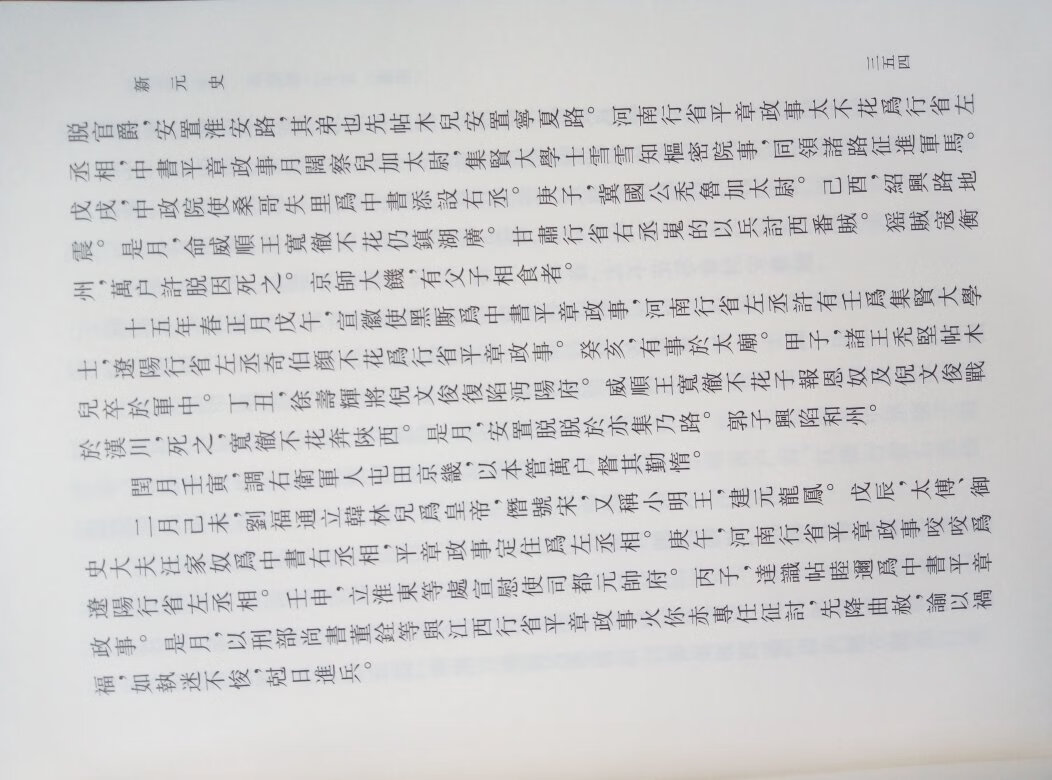 新元史
三五四
脫官爵，安置淮安路，其弟也先帖木兒安置寧夏路。河南行省平章政事太不花爲行省左
丞相，中書平章政事月闊察兒加太尉，集賢大學士雪雪知樞密院事，同領諸路征進軍馬。
戊戌，中政院使桑哥失里爲中書添設右丞。庚子，冀國公禿魯加太尉。己酉，紹興路地
震。是月，命威順王寬徹不花仍鎮湖廣。甘肅行省右丞嵬的以兵討西番賊。猺賊寇衡
州，萬户許脫因死之。京師大饑，有父子相食者。
十五年春正月戊午，宣徽使黑厮爲中書平章政事，河南行省左丞許有壬爲集賢大學
士，遼陽行省左丞奇伯顏不花爲行省平章政事。癸亥，有事於太廟。甲子，諸王禿堅帖木
兒卒於軍中。丁丑，徐壽輝將倪文俊復陷沔陽府。威順王寬徹不花子報恩奴及倪文俊戰
於漢川，死之，寬徹不花奔陝西。是月，安置脫脫於亦集乃路。郭子興陷和州。
閏月壬寅，調右衛軍人屯田京畿，以本管萬户督其勤惰。
二月己未，劉福通立韓林兒爲皇帝，僭號宋，又稱小明王，建元龍鳳。戊辰，太傅、御
史大夫汪家奴爲中書右丞相，平章政事定住爲左丞相。庚午，河南行省平章政事咬咬爲
遼陽行省左丞相。壬申，立淮東等處宣慰使司都元帥府。丙子，達識帖睦邇爲中書平章
政事。是月，以刑部尚書董銓等與江西行省平章政事火你赤專任征討，先降曲赦，諭以禍
福，如執迷不悛，尅日進兵。